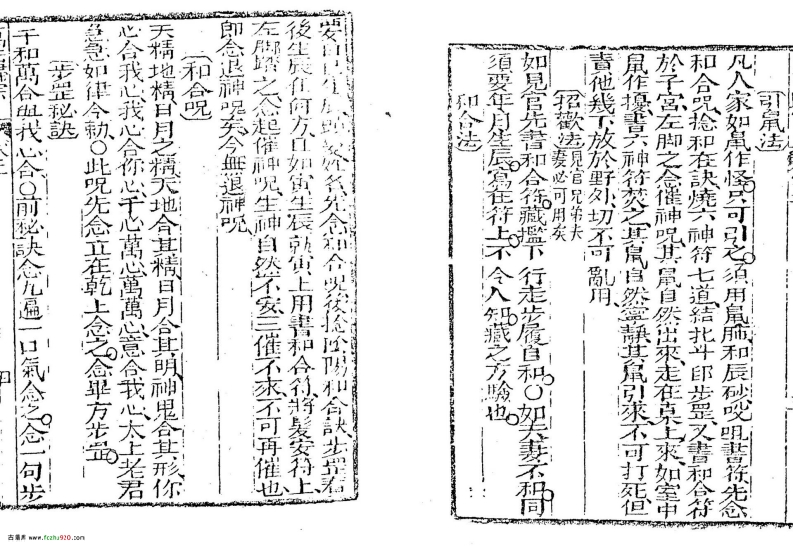 引鼠法
凡人家如鼠作怪只可引之須用鼠肺和辰砂咒咀書符先念
和合咒捻和在訣燒六神符七道結北斗印步罡又書和合符
於子宮左脚之念催神咒其鼠自然出來走在桌上來如室中
鼠作擾書六神符焚之其鼠自然寧靜其鼠引來不可打死但
責他幾下放於野外切不可亂用
招歡法見官兄弟夫妻必可用矣
如見官先書和合符藏攏下行走步履自和○如夫妻不和同
須要年月生辰寫在符上不令人知藏之方驗也
和合法
姓名先念和合咒後捻陰陽和合訣步罡看
後生辰在何方且如寅生辰就寅上用書和合符將髮安符上
左脚踏之念起催神咒生神自然不安三催不來不可再催也
即念退神咒矣今無退神咒
和合咒
天精地精日月之精天地合其精日月合其明神鬼合其形你
心合我心我心合你心千心萬心萬萬心意合我心太上老君
急急如律令勅○此咒先念立在乾上念之念畢方步罡
步罡秘訣
千和萬合與我心合○前秘訣念九遍一口氣念之念一句步
古籍库 www.fczhu920.com